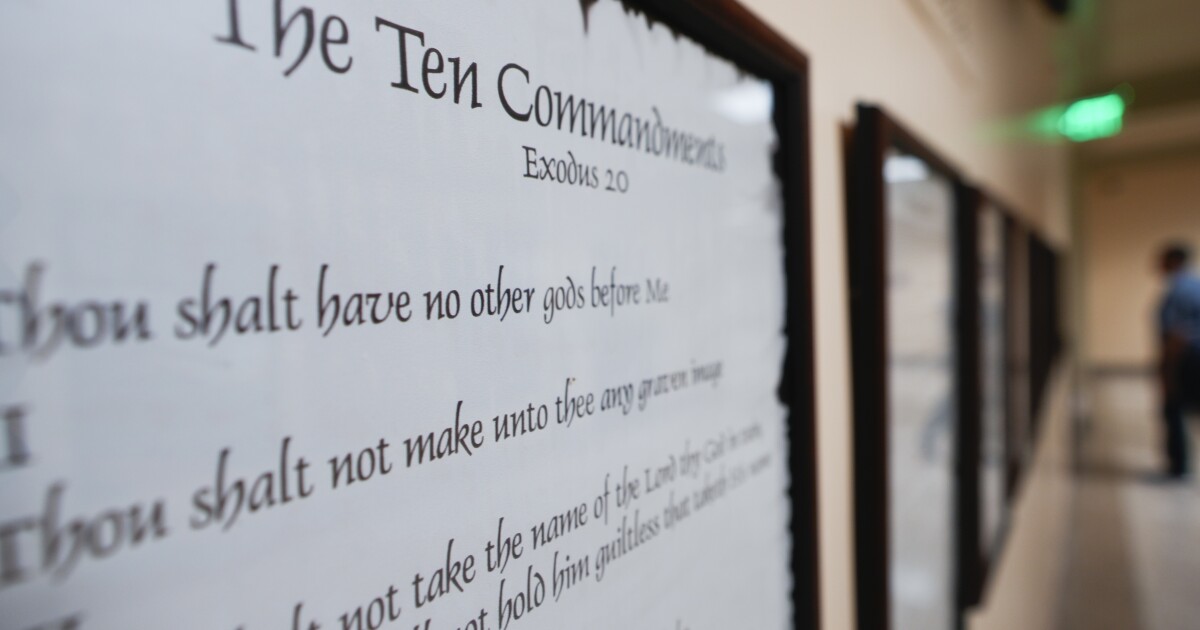 The Ten Commandments
Exodus 20
Thou shalt have no other gods before Me
II
Thou shalt not make unto thee any graven image
not take the name of the Lord thy God in vain,
not hold him guiltless that taketh His name